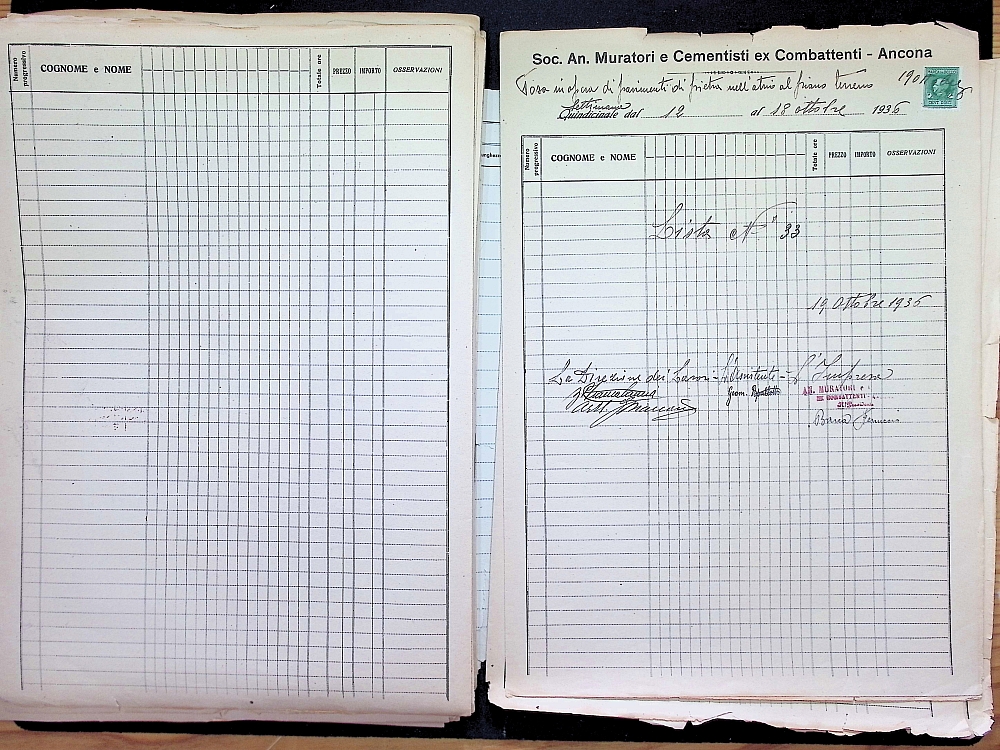 Numero progressivo
COGNOME e NOME
Totale ore
PREZZO
IMPORTO
OSSERVAZIONI
Soc. An. Muratori e Cementisti ex Combattenti - Ancona
Posa in opera di pavimenti di pietra nell'atrio al piano terreno
Settimana
Quindicinale dal 12 al 18 ottobre 1936
Numero progressivo
COGNOME e NOME
Totale ore
PREZZO
IMPORTO
OSSERVAZIONI
Lista N° 33
19 Ottobre 1936
La Direzione dei Lavori - L'Assistente - L'Impresa
Geom.
AN. MURATORI e
EX COMBATTENTI